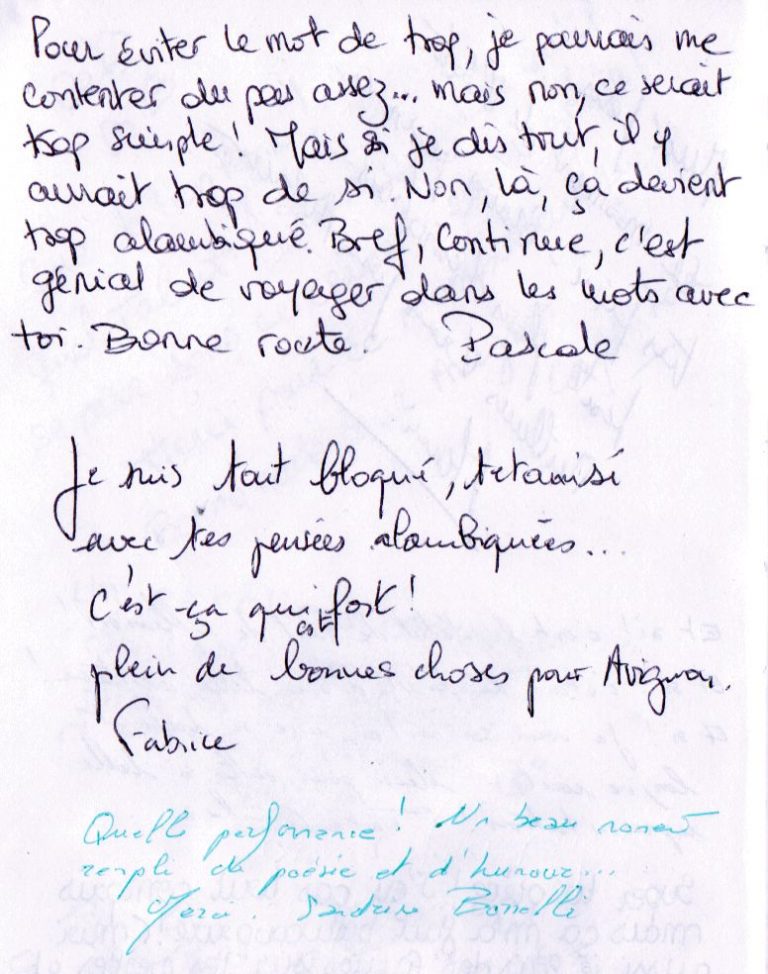 Pour éviter le mot de trop, je pourrais me
contenter du pas assez... mais non, ce serait
trop simple! Mais si je dis tout, il y
aurait trop de si. Non, là, ça devient
trop alambiqué. Bref, continue, c'est
génial de voyager dans les mots avec
toi. Bonne route. Pascale
Je suis tout bloqué, tetanisé
avec tes pensées alambiquées...
c'est ça qui est fort!
plein de bonnes choses pour Avignon.
Fabrice
Quelle performance! Un beau moment
remple de poésie et d'humour...
Merci. Sandrine Bonelli